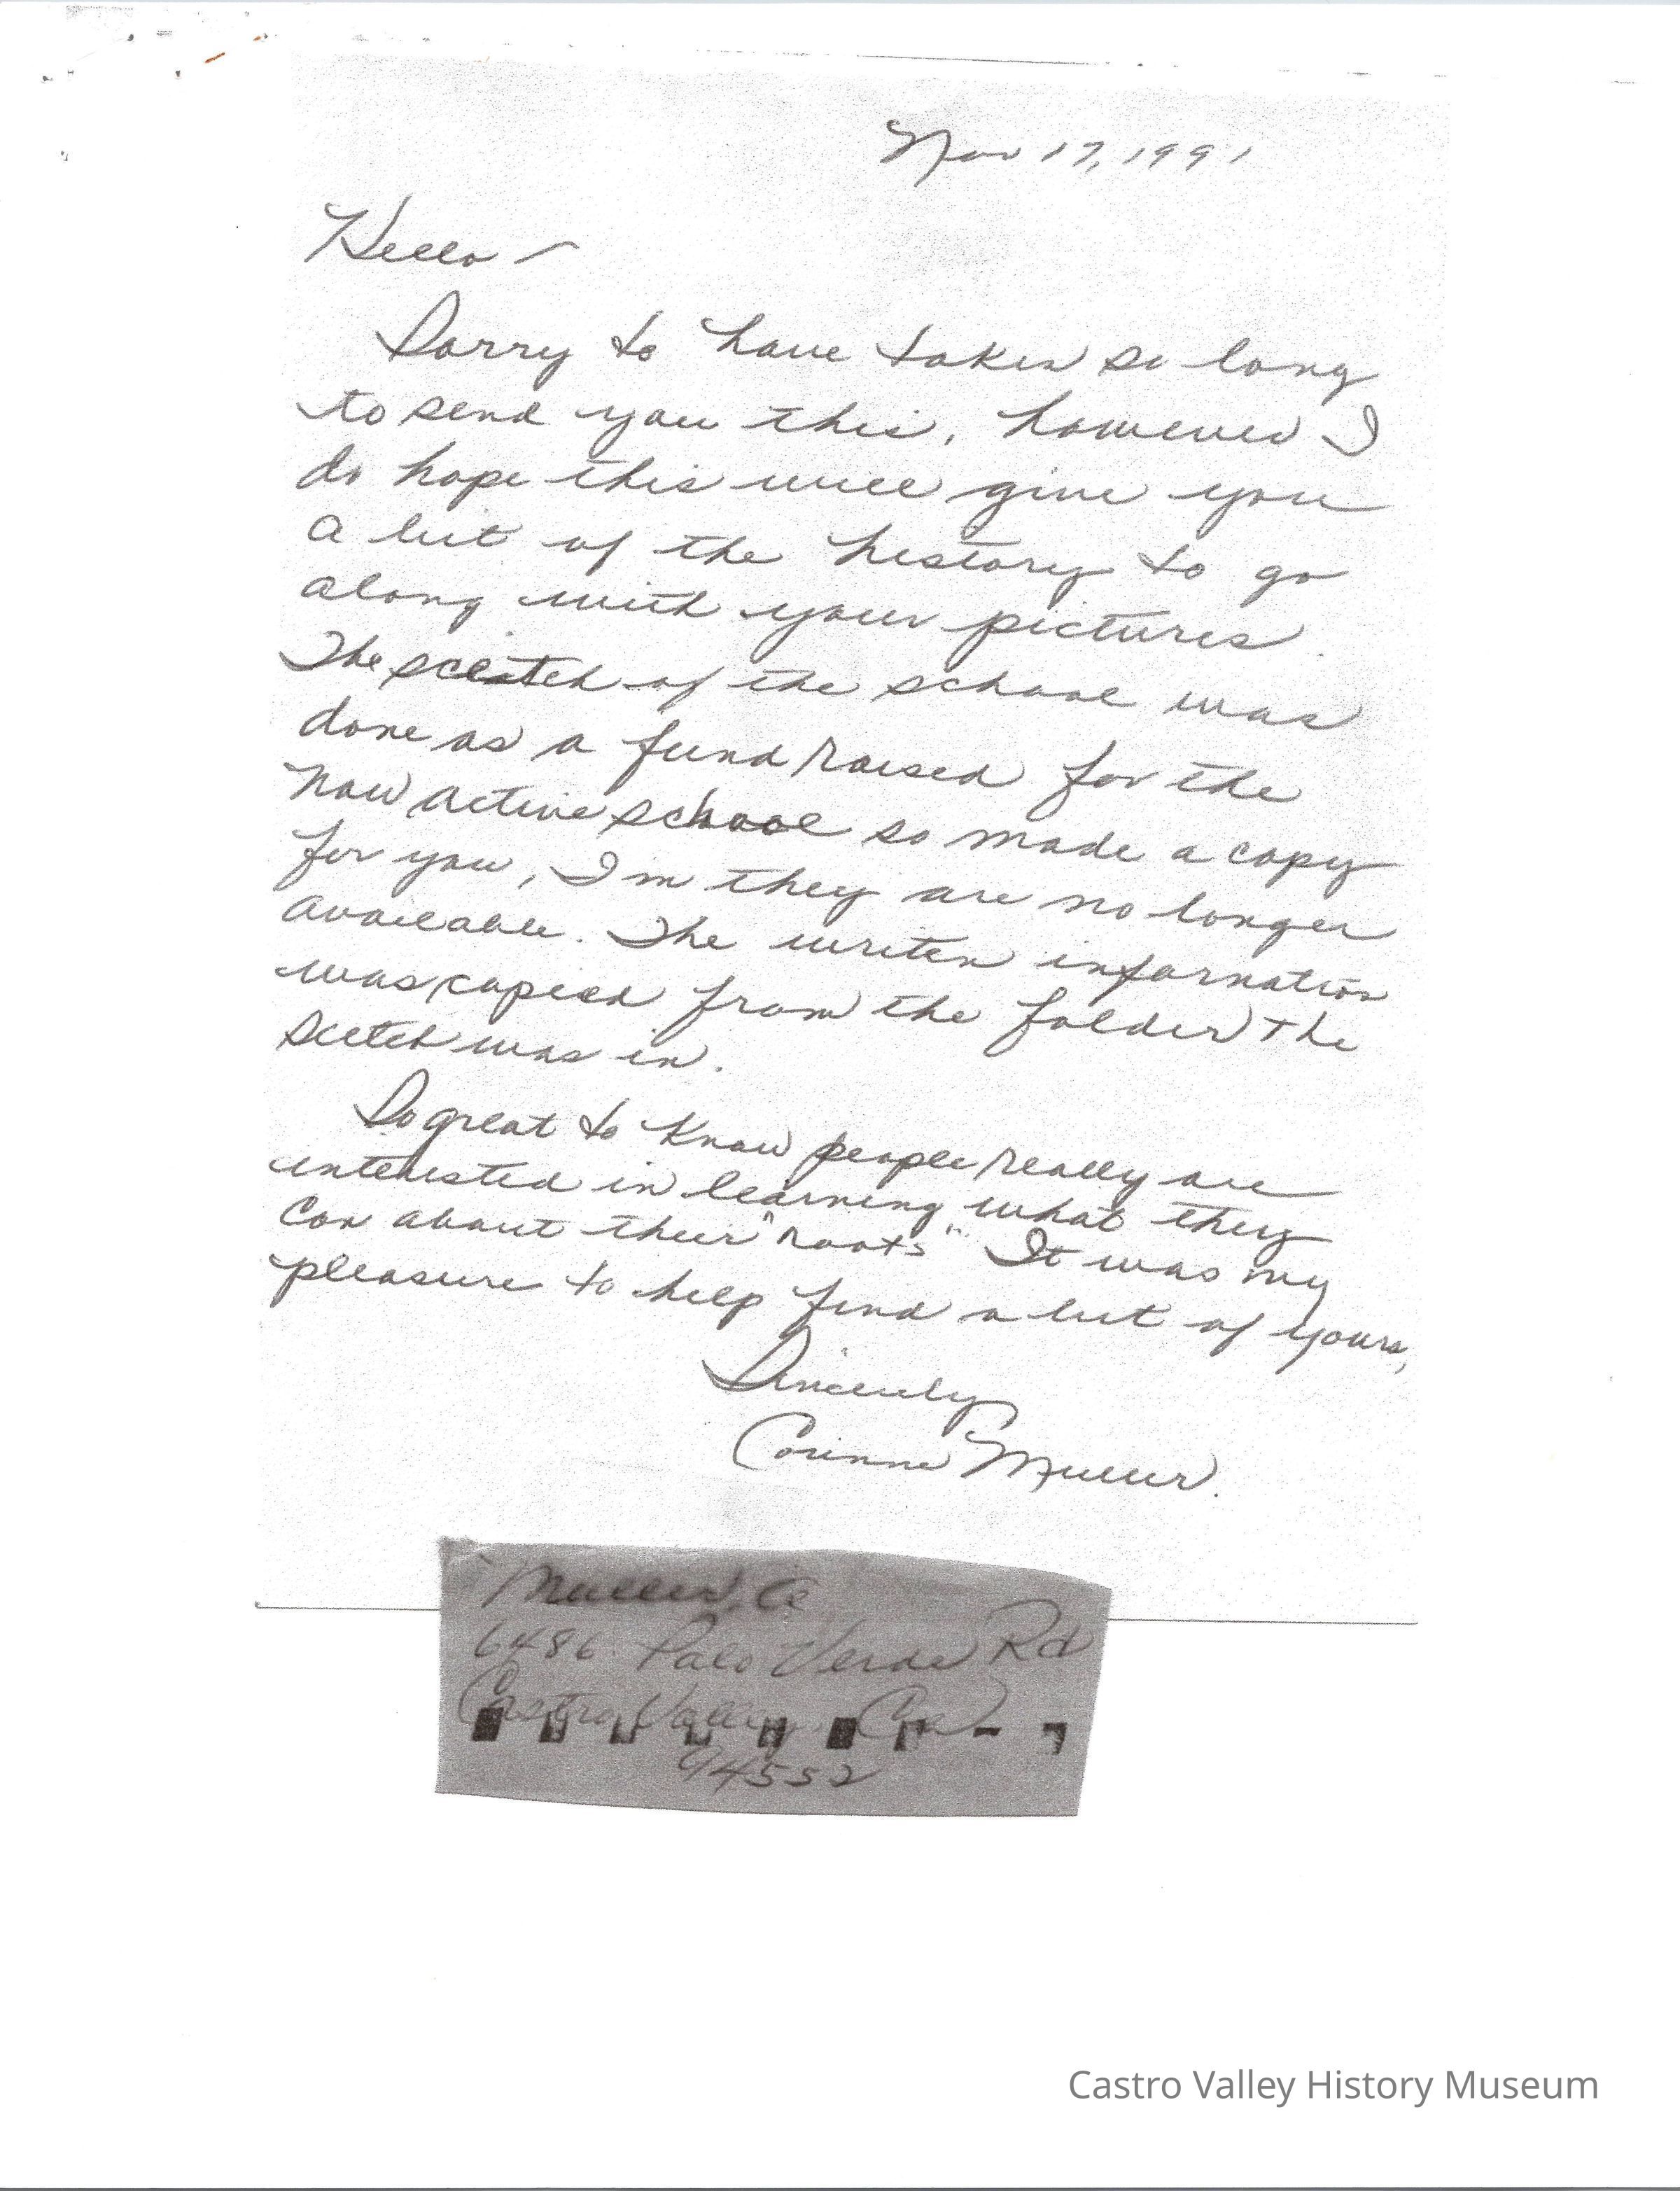 Nov 17, 1991
Hello –
Sorry to have taken so long
to send you this, however I
do hope this will give you
a bit of the history to go
along with your pictures.
The scetch of the school was
done as a fund raised for the
now active school so made a copy
for you, I'm they are no longer
available. The writen information
was copied from the folder the
scetch was in.
So great to know people really are
interested in learning what they
can about their "roots". It was my
pleasure to help find a bit of yours,
Sincerely
Corinne Muller.
Muller, C
6486 Palo Verde Rd
Castro Valley, Ca
94552
Castro Valley History Museum